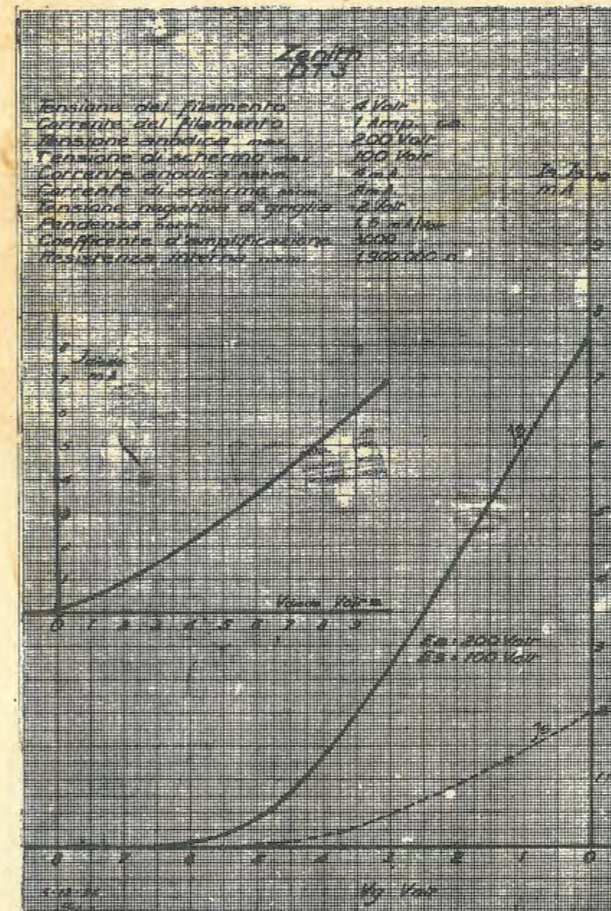 Zenith
DT3
Tensione del filamento 4 Volt
Corrente del filamento 1 Amp. ca
Tensione anodica max 200 Volt
Tensione di schermo max 100 Volt
Corrente anodica norm. 4 mA
Corrente di schermo norm. 1 mA
Tensione negativa di griglia 2 Volt
Pendenza norm. 1,5 mA/Volt
Coefficente d'amplificazione
Resistenza interna norm.
mA
9
8
8
7
7
6
6
5
5
4
4
3
3
2
1
1
mA
Volt =
0 1 2 3 4 5 6 7 8 9
Ea = 200 Volt
Es = 100 Volt
8 7 6 5 4 3 2 1 0
Vg Volt